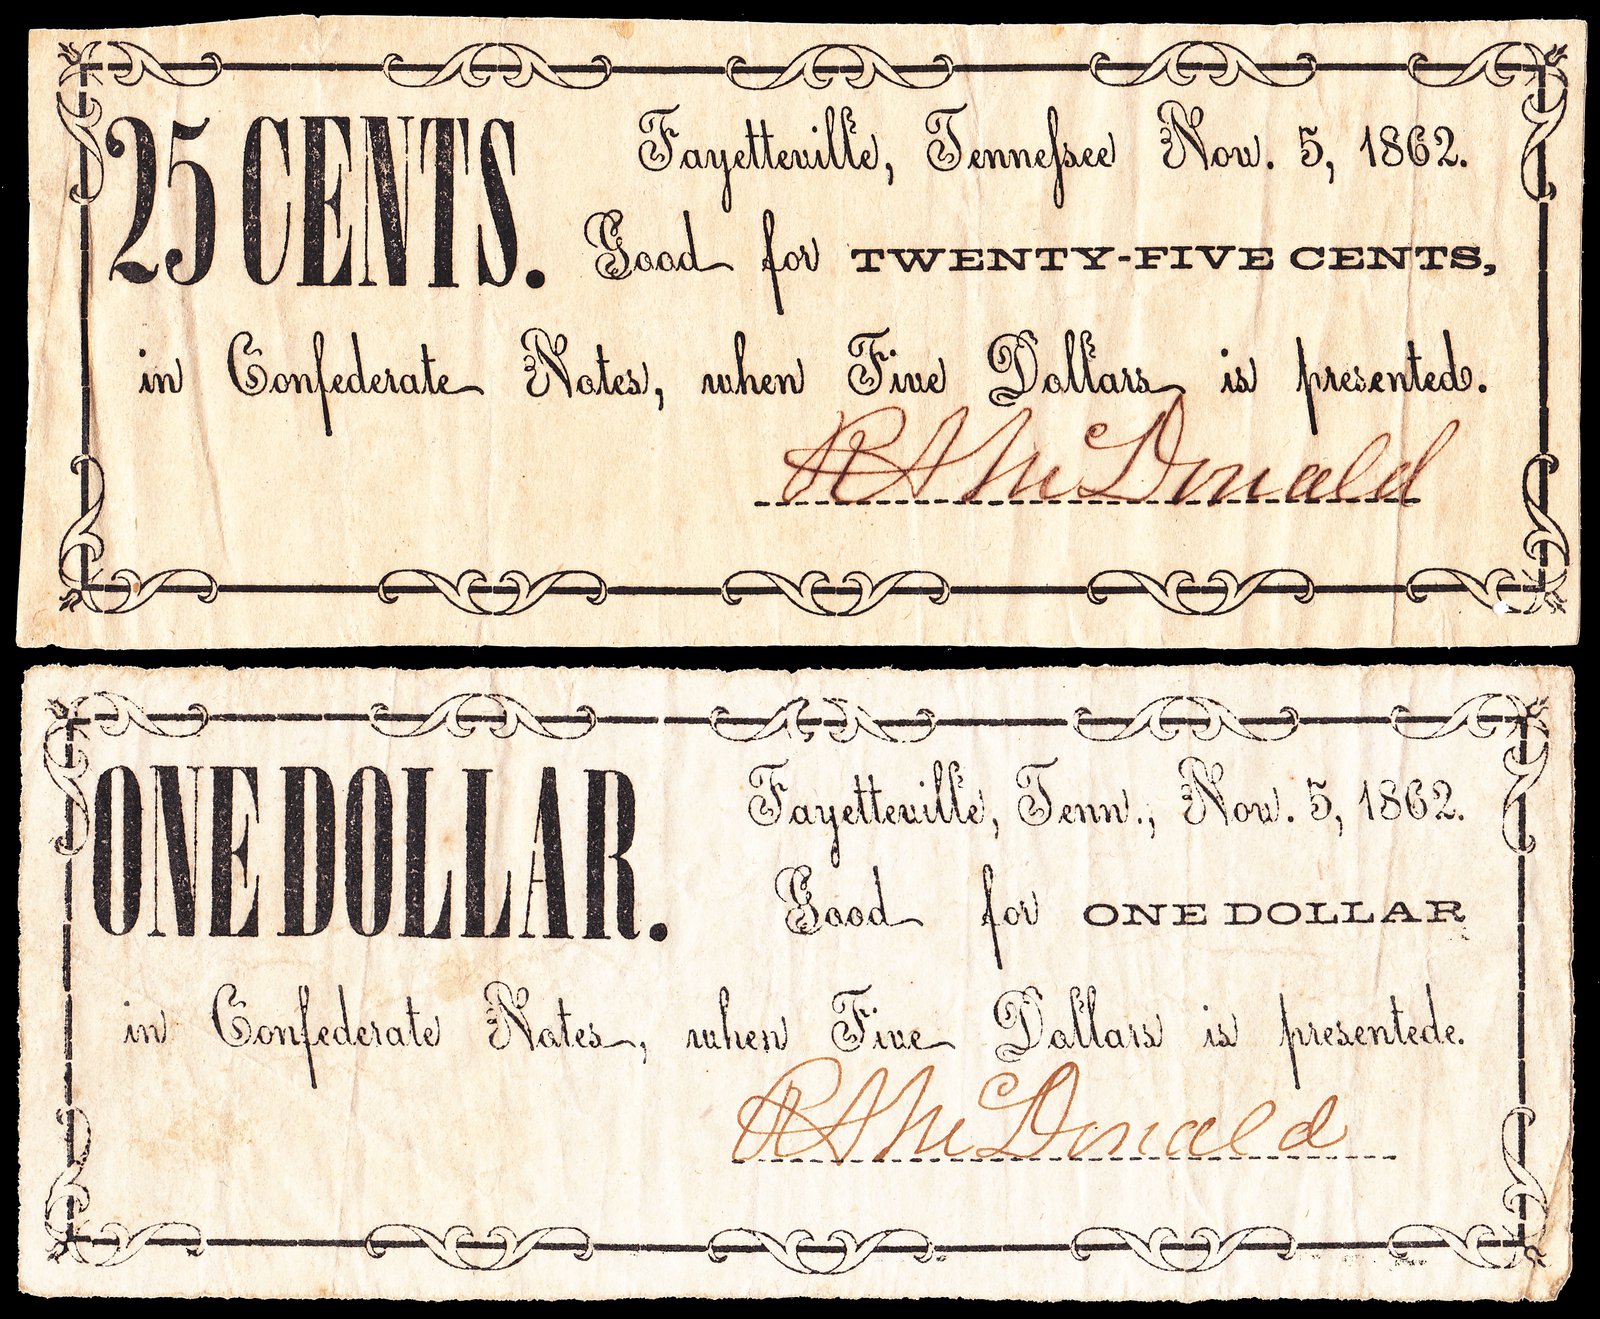 25 CENTS.
Fayetteville, Tenneſsee Nov. 5, 1862.
Good for TWENTY-FIVE CENTS,
in Confederate Notes, when Five Dollars is presented.
R A McDonald
ONE DOLLAR.
Fayetteville, Tenn., Nov. 5, 1862.
Good for ONE DOLLAR
in Confederate Notes, when Five Dollars is presentede.
R A McDonald